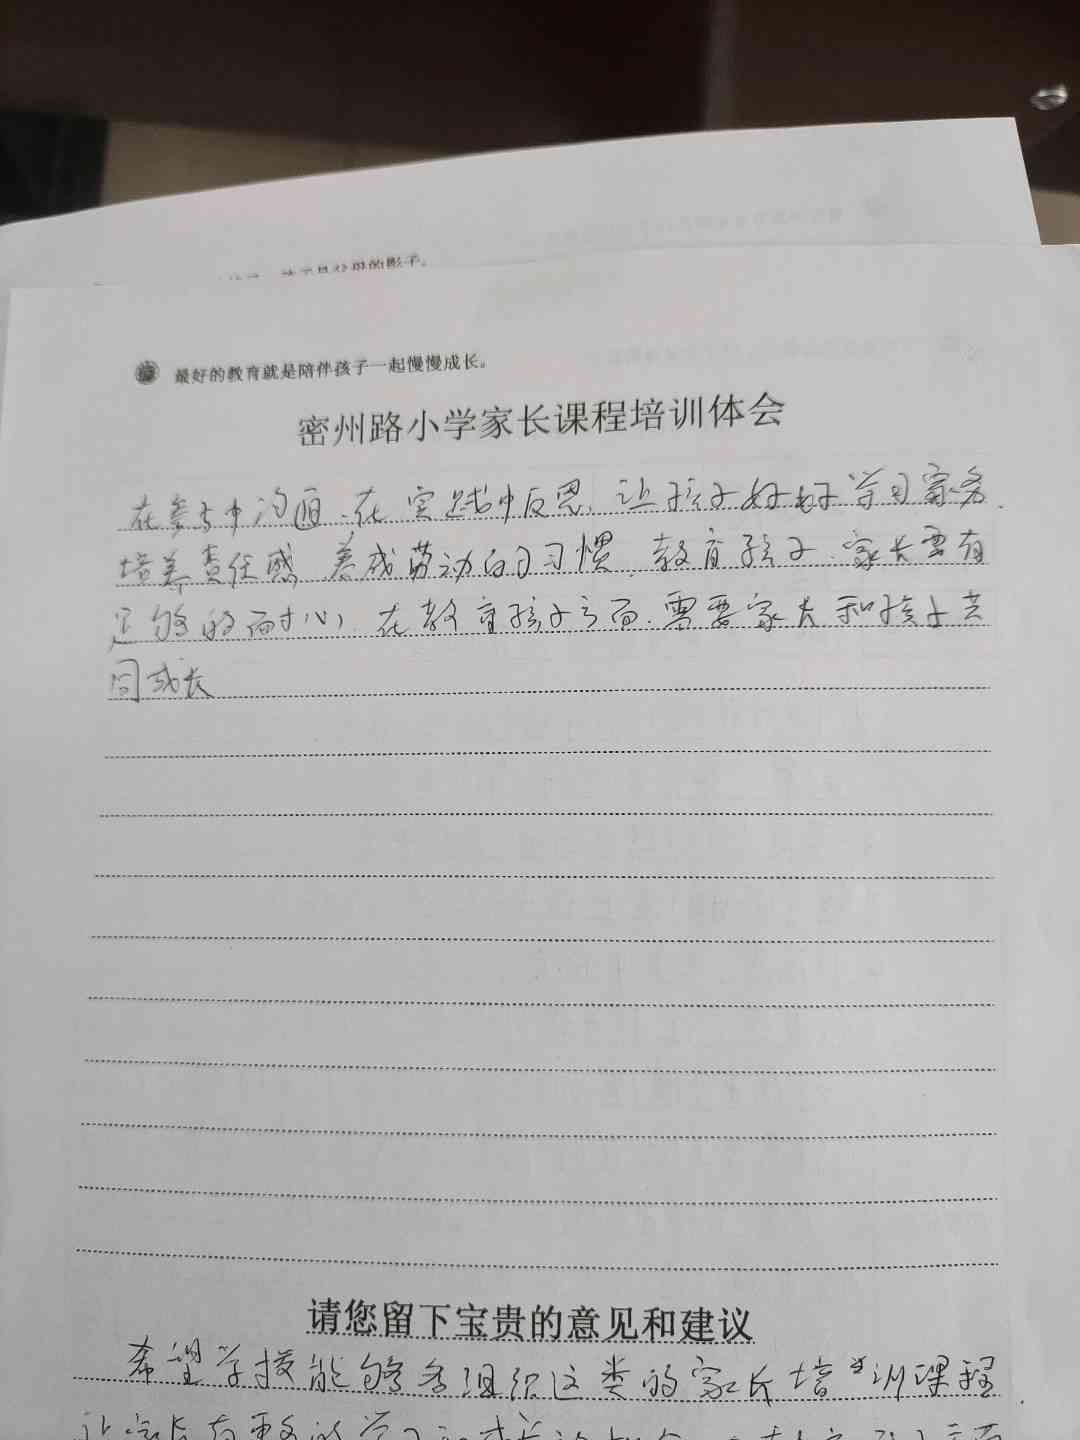 孩子是父母的影子。
最好的教育就是陪伴孩子一起慢慢成长。
密州路小学家长课程培训体会
在参与中沟通.在实践中反思.让孩子好好学习家务.
培养责任感 养成劳动的习惯.教育孩子.家长要有
足够的耐心.在教育孩子方面.需要家长和孩子共
同成长
请您留下宝贵的意见和建议
希望学校能够多组织这类的家长培训课程.
让家长有更多的学习和成长的机会